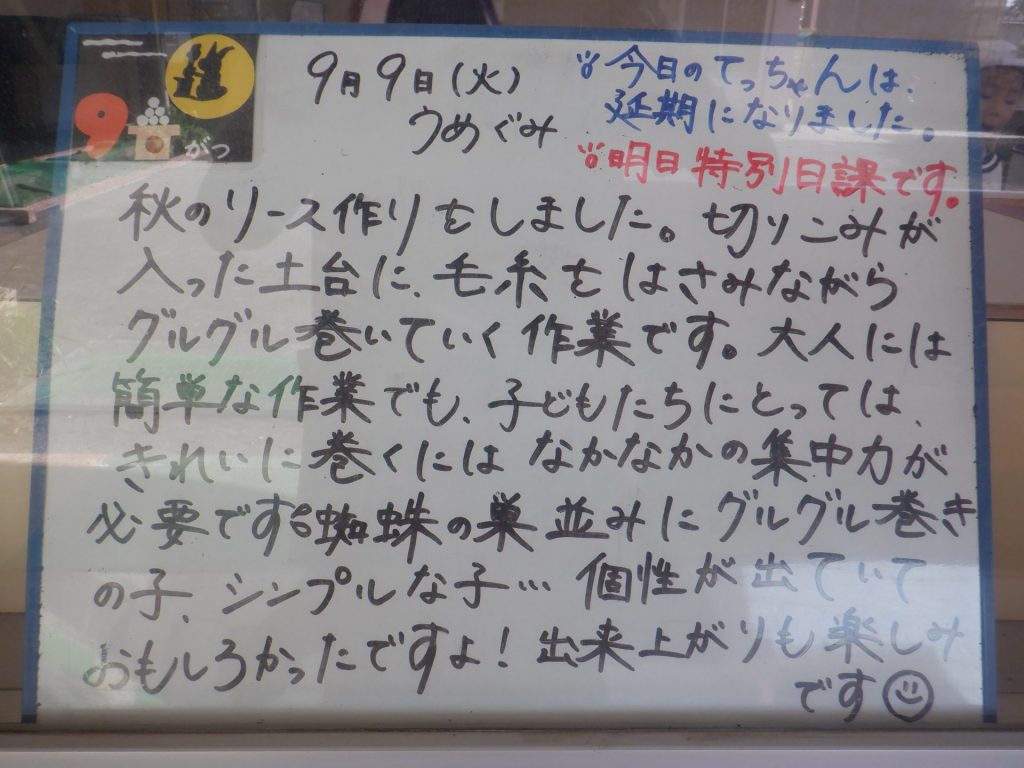 9
がつ
9月9日(火)
うめぐみ
今日のてっちゃんは、
延期になりました。
明日特別日課です。
秋のリース作りをしました。切りこみが
入った土台に、毛糸をはさみながら
グルグル巻いていく作業です。大人には
簡単な作業でも、子どもたちにとっては、
きれいに巻くにはなかなかの集中力が
必要です。蜘蛛の巣並みにグルグル巻き
の子、シンプルな子… 個性が出ていて
おもしろかったですよ!出来上がりも楽しみ
です